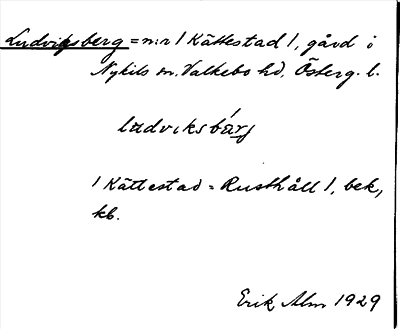 Ludviksberg = n:r 1 Kättestad 1, gård i
Nykils sn. Valkebo hd, Österg. l.
ludviksbárj
1 Kättestad = Rusthåll 1, bek,
kb.
Erik Alm 1929